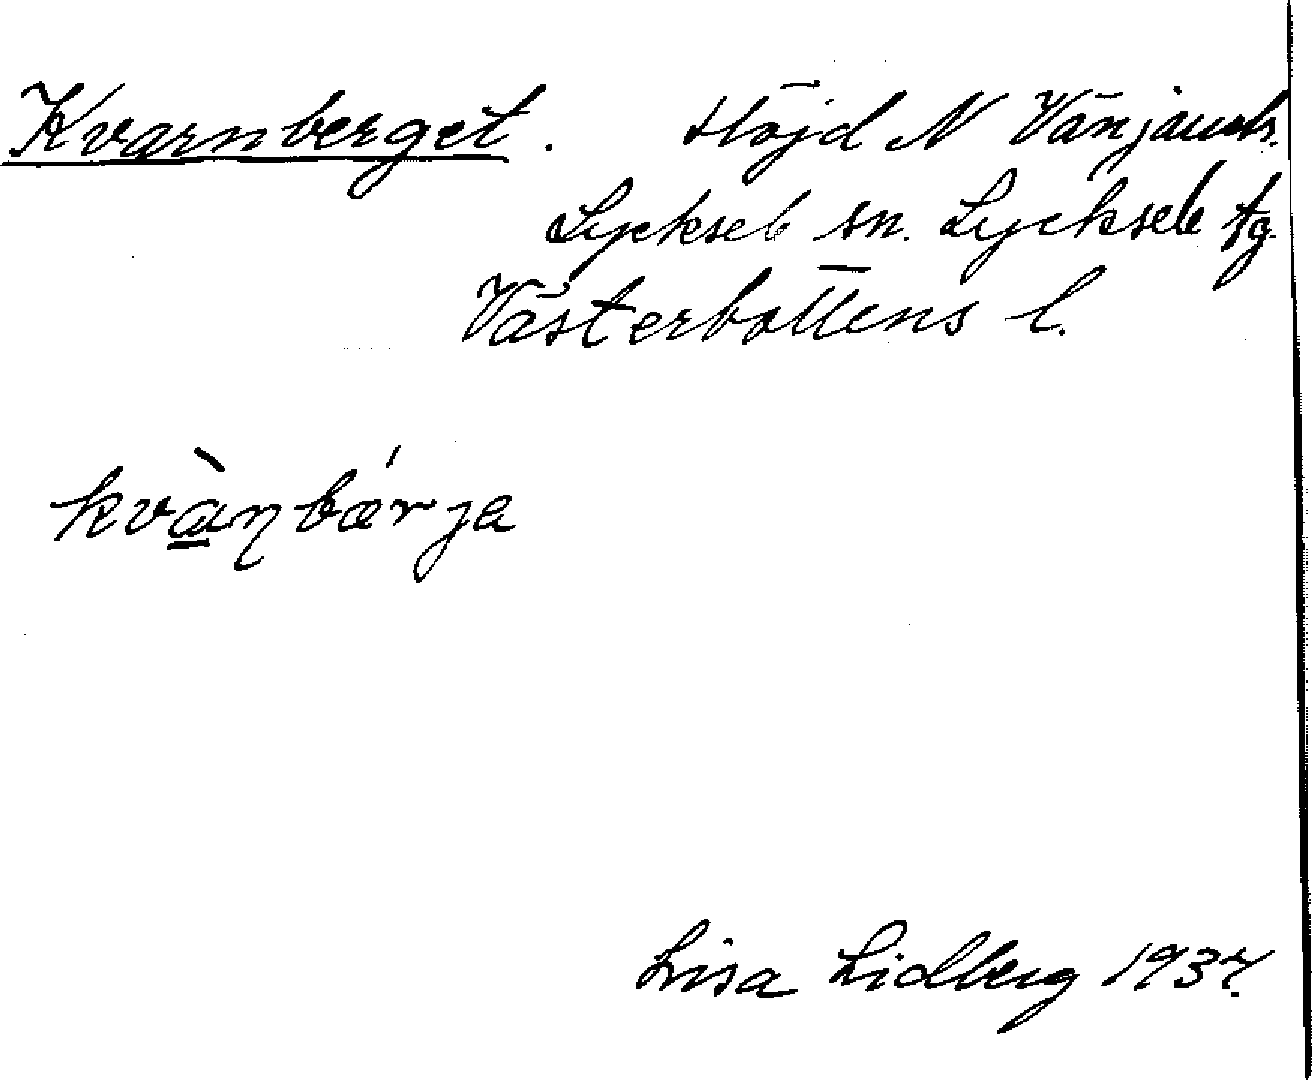 Kvarnberget. Höjd N Vänjaurb.
Lycksele sn. Lycksele tg
Västerbottens l.
kvànbǽrja
Lisa Lidberg 1937.